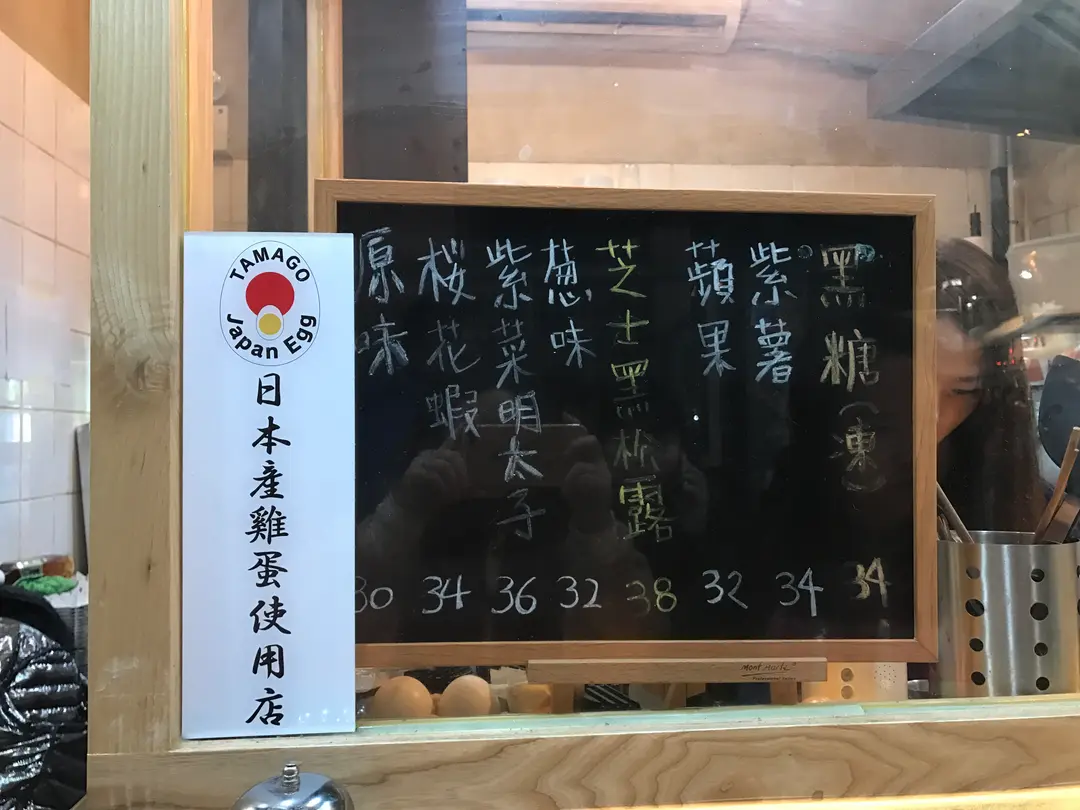 TAMAGO
Japan Egg
日本産雞蛋使用店
原味 30
桜花蝦 34
紫菜明太子 36
葱味 32
芝士黑松露 38
蘋果 32
紫薯 34
黑糖(凍) 34
Mont Marte